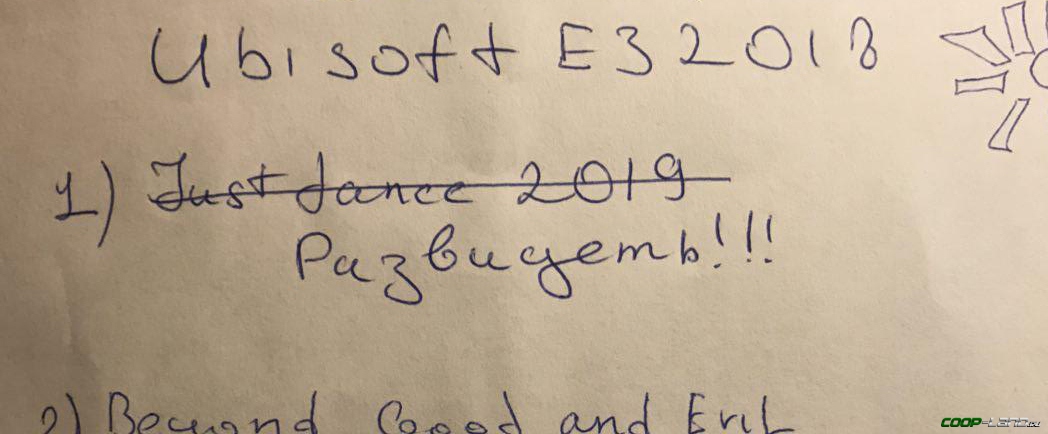 Ubisoft E3 2018
1) Just dance 2019
Развидеть!!!
2) Beyond Good and Evil
COOP-LAND.RU